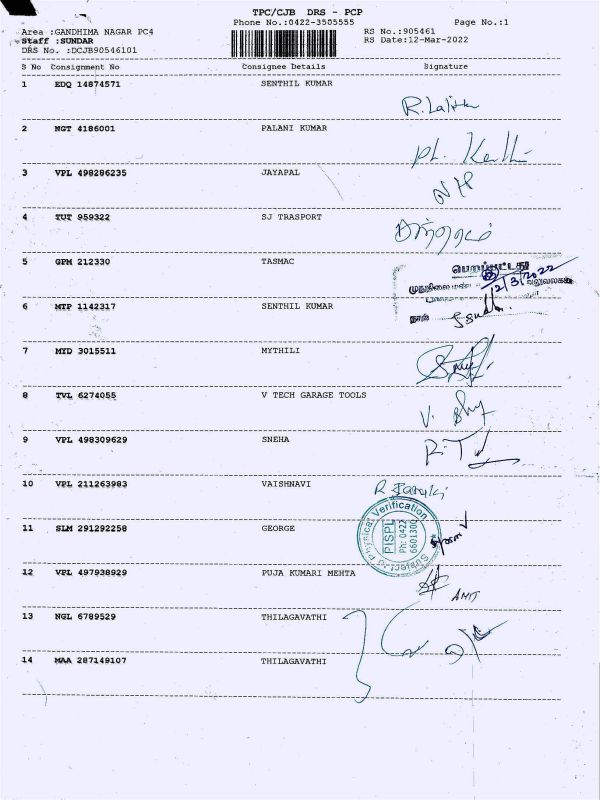 TPC/CJB DRS - PCP
Phone No.:0422-3505555 Page No.:1
Area :GANDHIMA NAGAR PC4 RS No.:905461
Staff :SUNDAR RS Date:12-Mar-2022
DRS No. :DCJB90546101
S No Consignment No Consignee Details Signature
1 EDQ 14874571 SENTHIL KUMAR
R. Lalitha
2 NGT 4186001 PALANI KUMAR
3 VPL 498286235 JAYAPAL
4 TUT 959322 SJ TRASPORT
5 GPM 212330 TASMAC
பெறப்பட்டது
12/3/2022
நாள்
6 MTP 1142317 SENTHIL KUMAR
7 MYD 3015511 MYTHILI
8 TVL 6274055 V TECH GARAGE TOOLS
9 VPL 498309629 SNEHA
10 VPL 211263983 VAISHNAVI
Subject to Physical Verification
PISPL
Ph: 0422
6601300
11 SLM 291292258 GEORGE
12 VPL 497938929 PUJA KUMARI MEHTA
AMIT
13 NGL 6789529 THILAGAVATHI
14 MAA 287149107 THILAGAVATHI